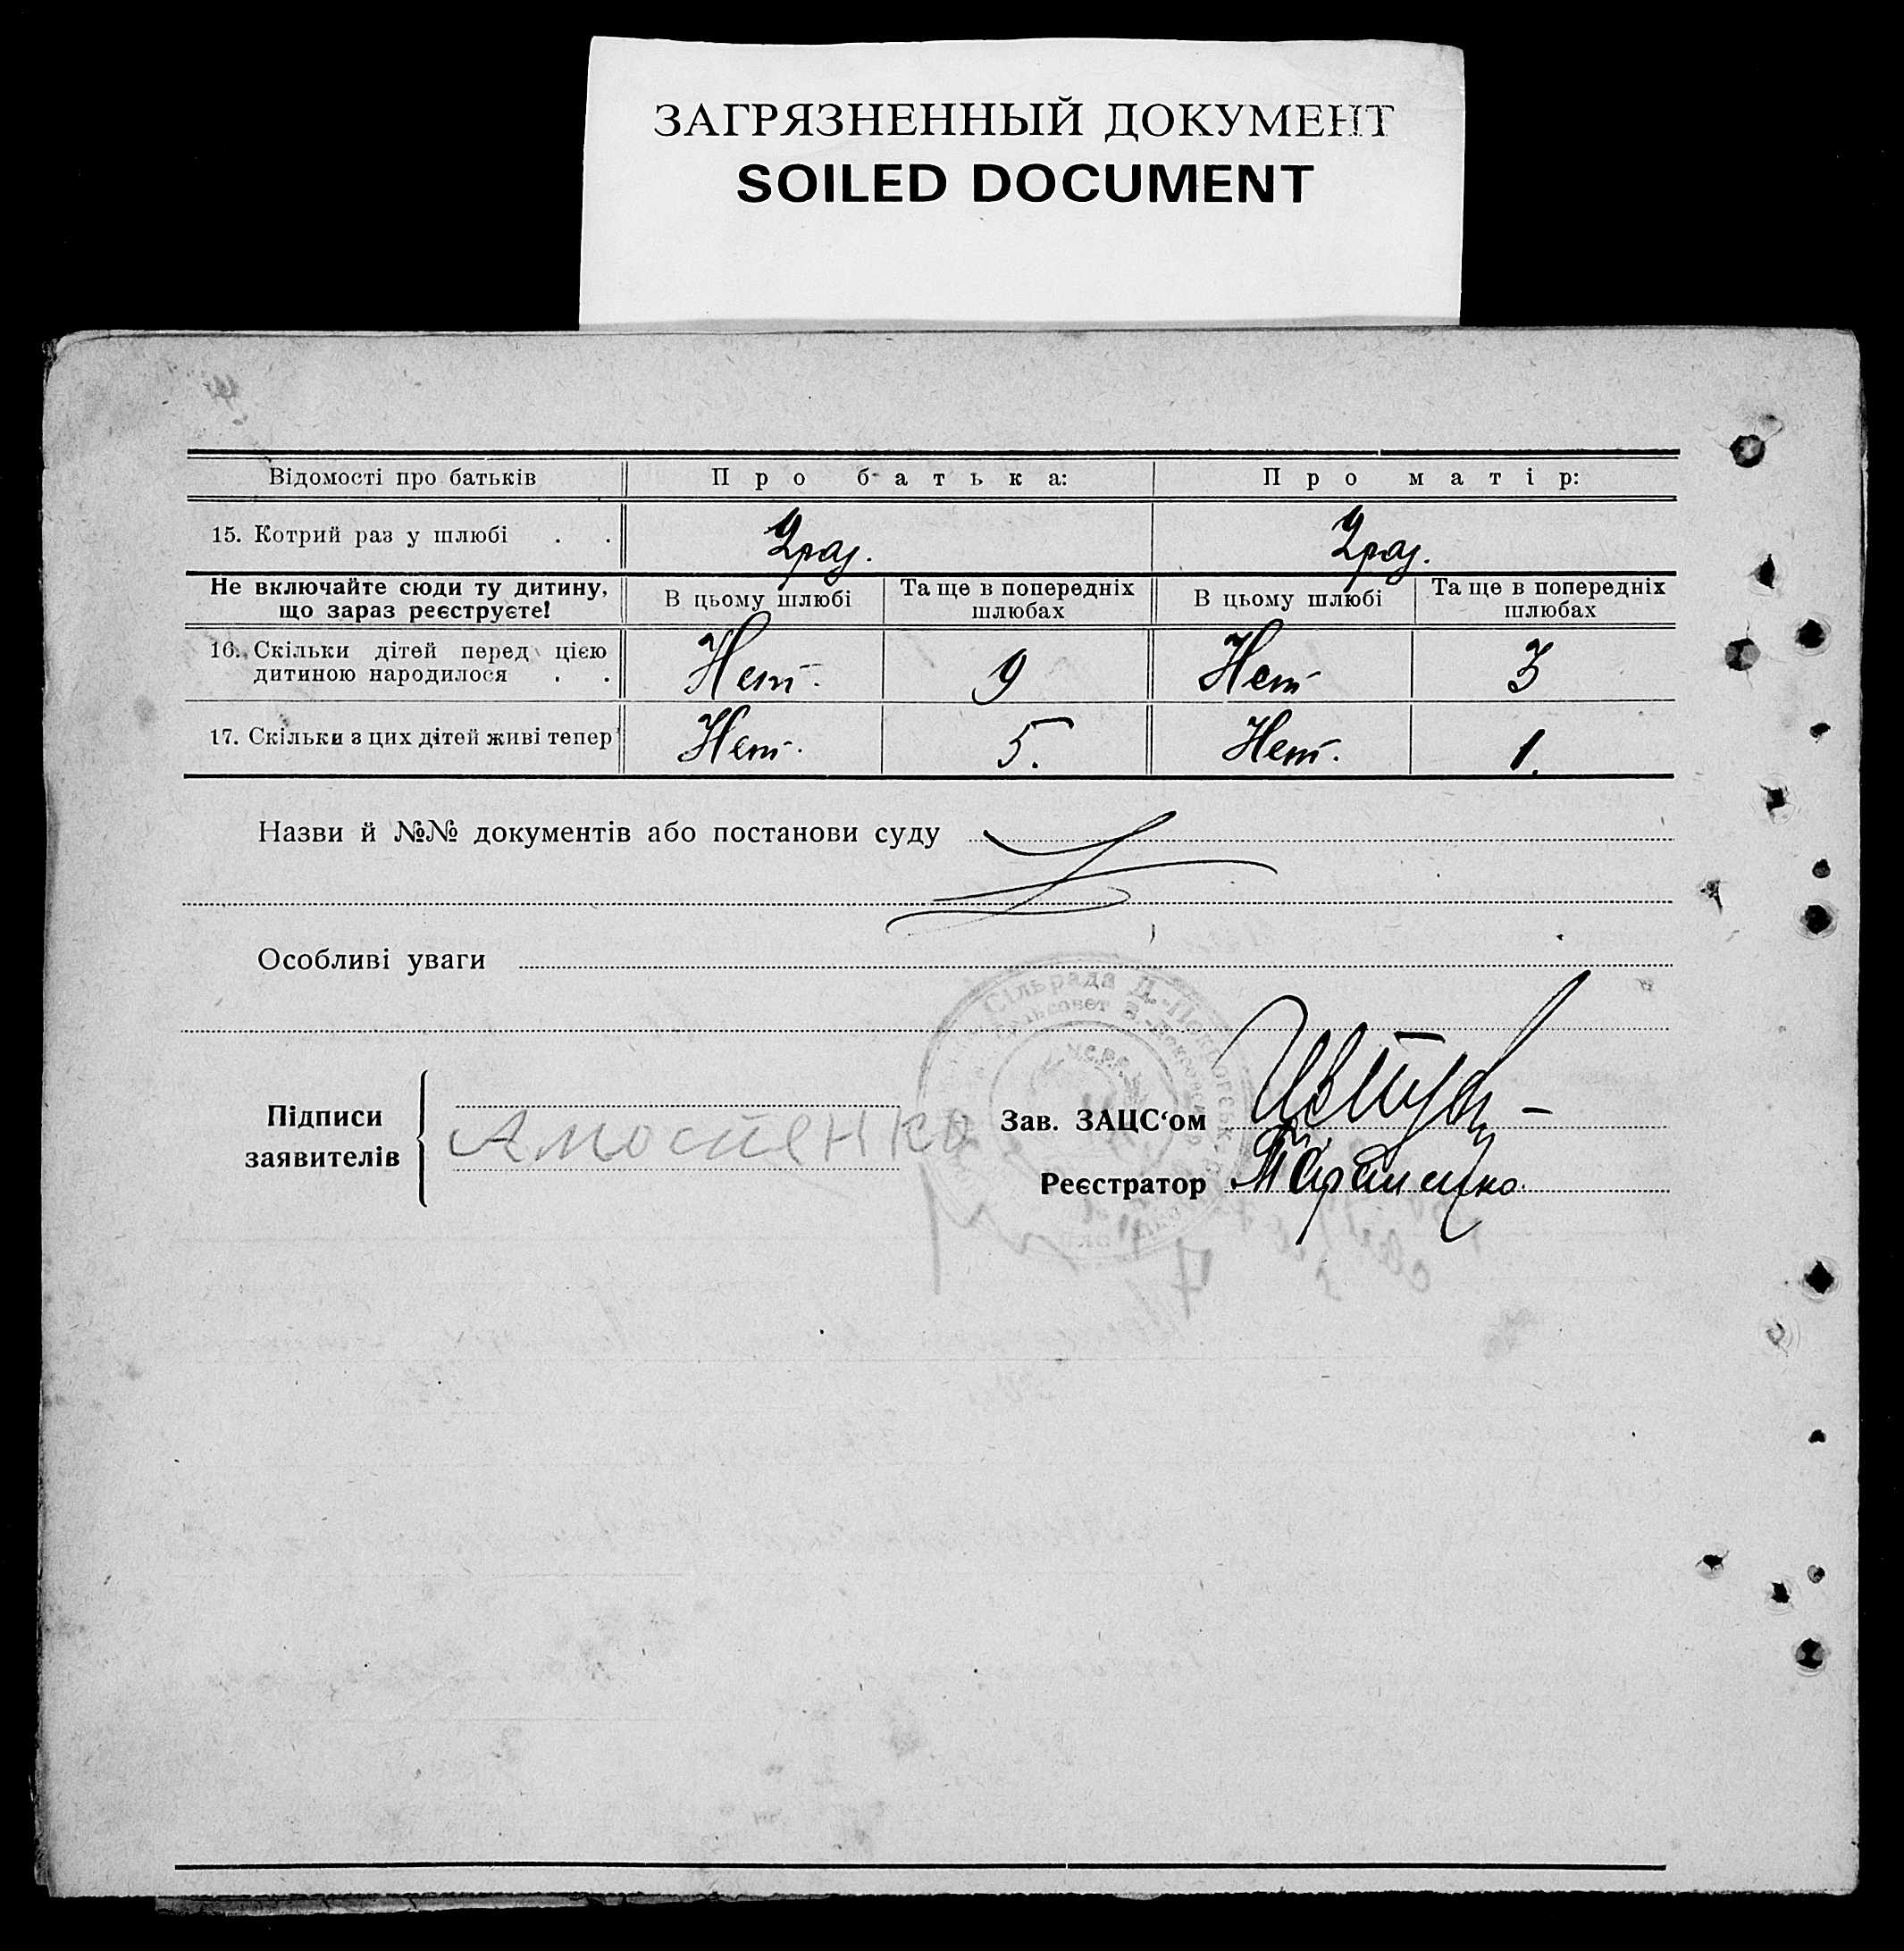 ЗАГРЯЗНЕННЫЙ ДОКУМЕНТ
SOILED DOCUMENT
Відомості про батьків Про батька: Про матір:
15. Котрий раз у шлюбі . . 2 раз. 2 раз.
Не включайте сюди ту дитину, що зараз реєструєте! В цьому шлюбі Та ще в попередніх шлюбах В цьому шлюбі Та ще в попередніх шлюбах
16. Скільки дітей перед цією дитиною народилося . . Нет. 9 Нет 3
17. Скільки з цих дітей живі тепер Нет. 5. Нет. 1.
Назви й №№ документів або постанови суду
Особливі уваги
Підписи заявителів Амостенко
Зав. ЗАЦС‘ом
Реєстратор
Сільрада